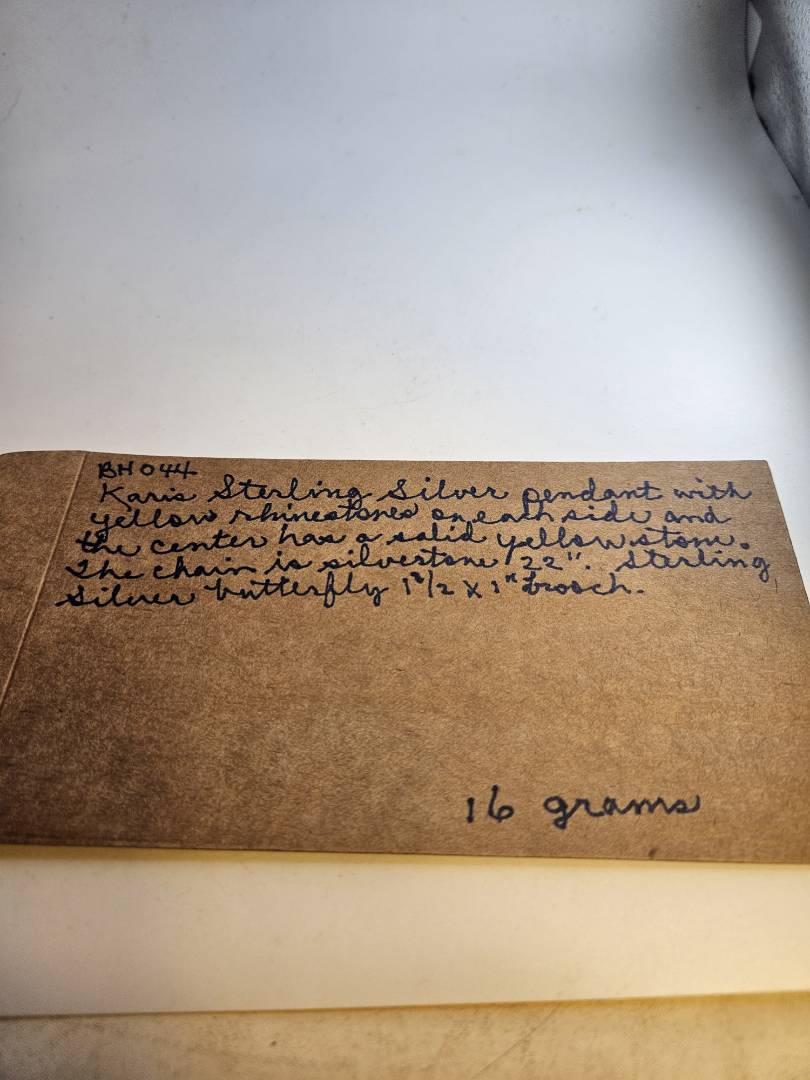 BH044
Karis Sterling Silver pendant with
yellow rhinestones on each side and
the center has a solid yellow stone.
The chain is silvertone 22". Sterling
Silver butterfly 1 1/2 x 1" brooch.
16 grams